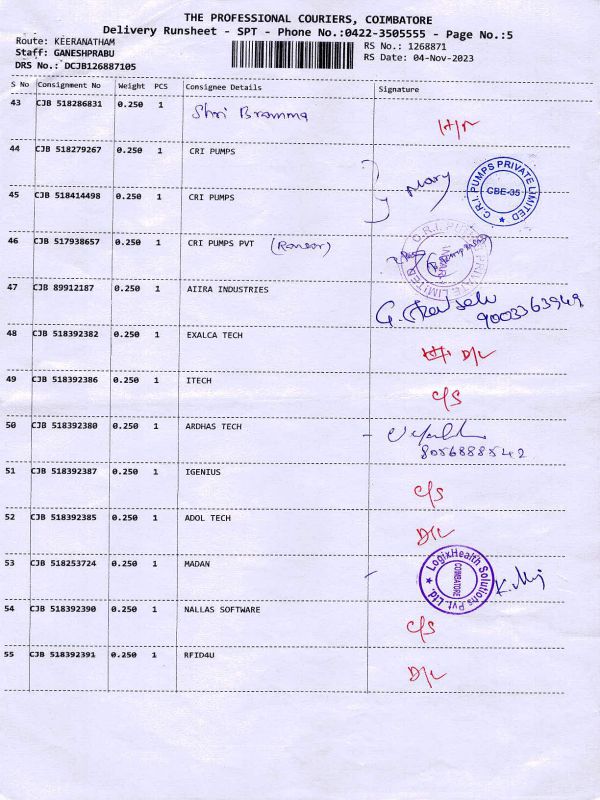 THE PROFESSIONAL COURIERS, COIMBATORE
Delivery Runsheet - SPT - Phone No.:0422-3505555 - Page No.:5
Route: KEERANATHAM RS No.: 1268871
Staff: GANESHPRABU RS Date: 04-Nov-2023
DRS No.: DCJB126887105
S No Consignment No Weight PCS Consignee Details Signature
43 CJB 518286831 0.250 1 Shri Bramma
44 CJB 518279267 0.250 1 CRI PUMPS
C.R.I. PUMPS PRIVATE LIMITED
CBE-35
45 CJB 518414498 0.250 1 CRI PUMPS
46 CJB 517938657 0.250 1 CRI PUMPS PVT
47 CJB 89912187 0.250 1 AIIRA INDUSTRIES
9003363949
48 CJB 518392382 0.250 1 EXALCA TECH D/L
49 CJB 518392386 0.250 1 ITECH C/S
50 CJB 518392380 0.250 1 ARDHAS TECH
8056888542
51 CJB 518392387 0.250 1 IGENIUS C/S
52 CJB 518392385 0.250 1 ADOL TECH D/L
53 CJB 518253724 0.250 1 MADAN
LogixHealth Solutions Pvt. Ltd.
COIMBATORE
54 CJB 518392390 0.250 1 NALLAS SOFTWARE C/S
55 CJB 518392391 0.250 1 RFID4U D/L